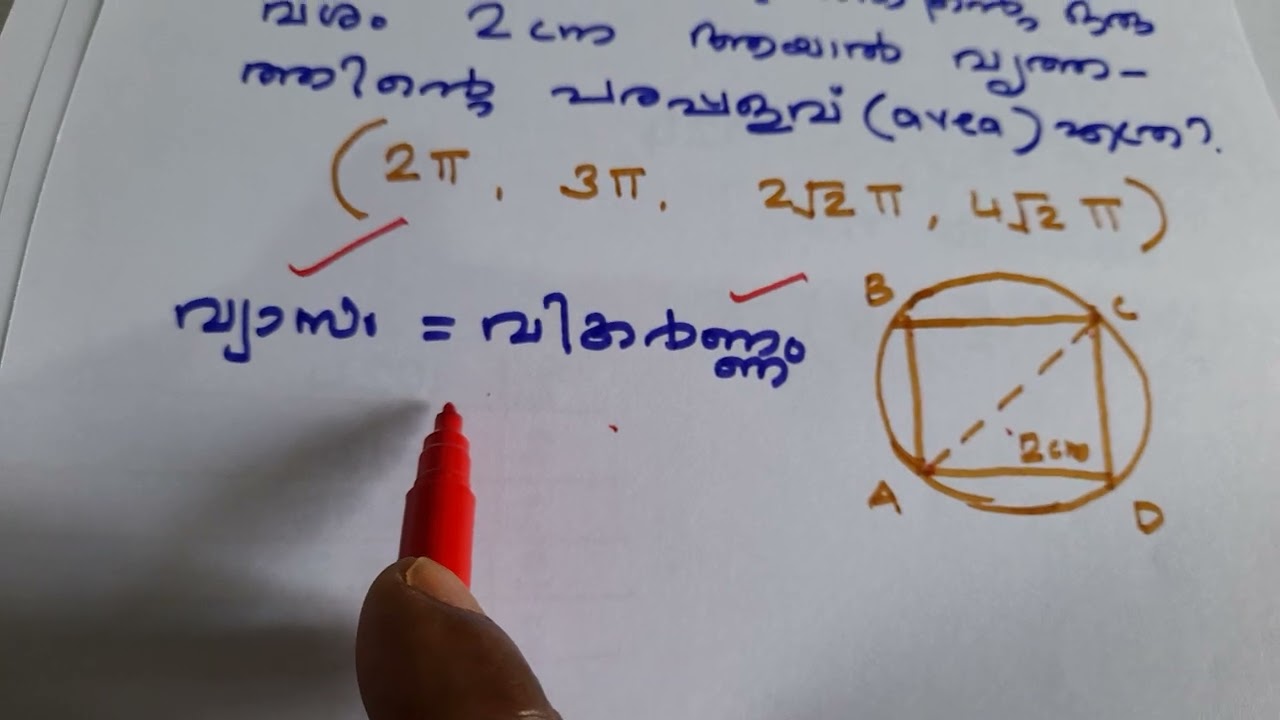 വശം 2 cm ആയാൽ വൃത്ത-
ത്തിന്റെ പരപ്പളവ് (area) എത്ര?
(2π, 3π, 2√2 π, 4√2 π)
വ്യാസം = വികർണ്ണം
B C
2 cm
A D